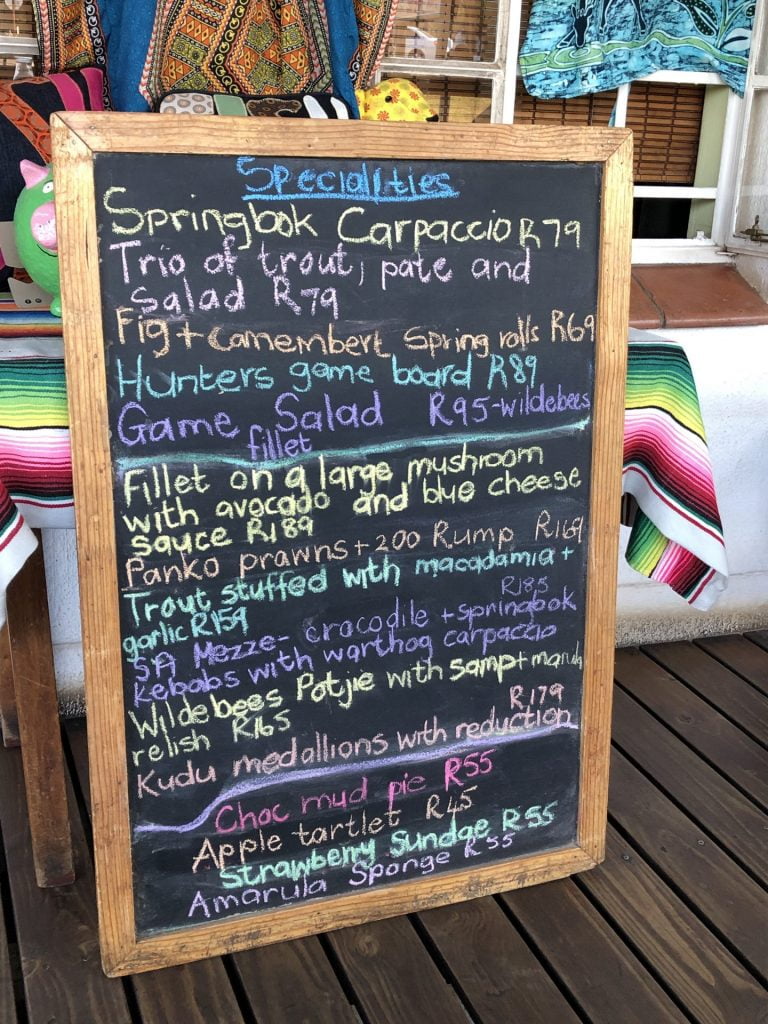 Specialities
Springbok Carpaccio R79
Trio of trout, pate and
Salad R79
Fig + camembert Spring rolls R69
Hunters game board R89
Game Salad R95-wildebees
fillet
Fillet on a large mushroom
with avocado and blue cheese
sauce R189
Panko prawns + 200 Rump R169
Trout stuffed with macadamia +
garlic R159
R185
SA Mezze- crocodile + springbok
kebabs with warthog carpaccio
Wildebees Potjie with samp + marula
relish R165
R179
Kudu medallions with reduction
Choc mud pie R55
Apple tartlet R45
Strawberry Sundae R55
Amarula Sponge R55